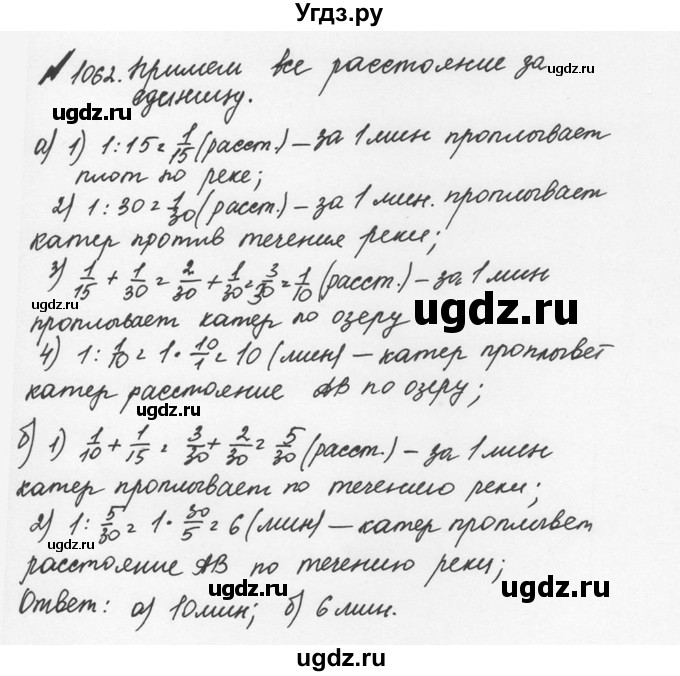 Угдз.ру
№ 1062. Примем все расстояние за
единицу.
ugdz.ru
а) 1) 1 : 15 = 1/15 (расст.) – за 1 мин проплывает
плот по реке;
ugdz.ru
2) 1 : 30 = 1/30 (расст.) – за 1 мин. проплывает
катер против течения реки;
3) 1/15 + 1/30 = 2/30 + 1/30 = 3/30 = 1/10 (расст.) – за 1 мин
ugdz.ru
проплывает катер по озеру
ugdz.ru
4) 1 : 1/10 = 1 · 10/1 = 10 (мин) – катер проплывет
катер расстояние АВ по озеру;
ugdz.ru
б) 1) 1/10 + 1/15 = 3/30 + 2/30 = 5/30 (расст.) – за 1 мин
ugdz.ru
катер проплывает по течению реки;
2) 1 : 5/30 = 1 · 30/5 = 6 (мин) – катер проплывет
ugdz.ru
расстояние АВ по течению реки;
ugdz.ru
Ответ: а) 10 мин; б) 6 мин.
ugdz.ru
ugdz.ru